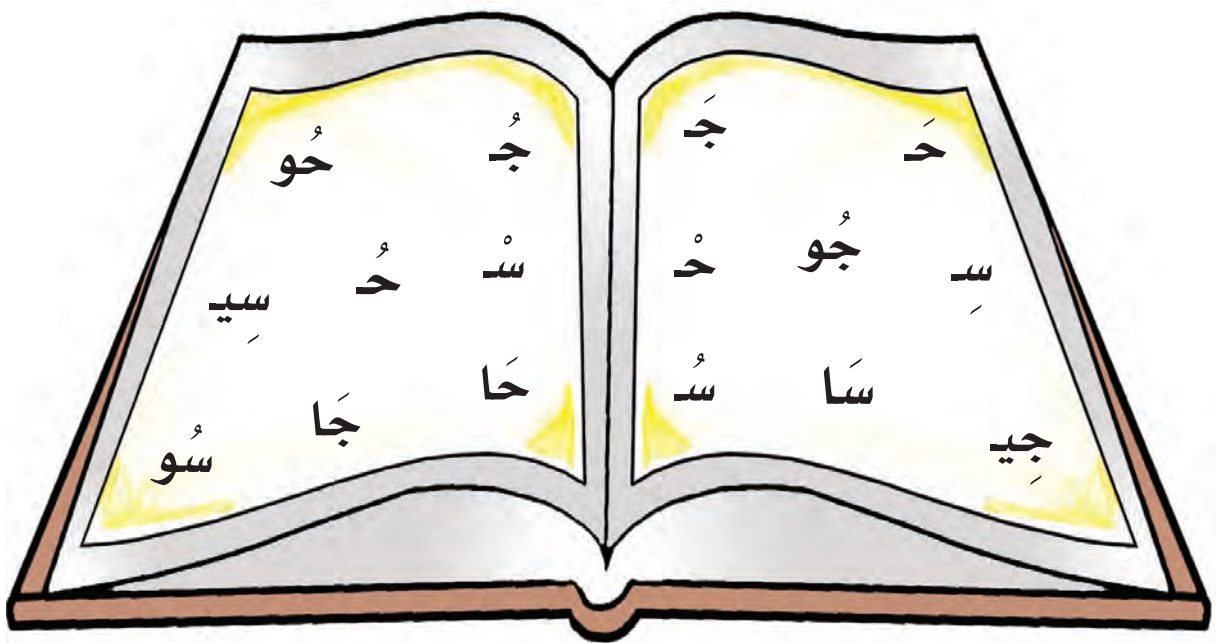 حَـ جَـ
سِـ جُو حْـ
جِيـ سَا سُـ
جُـ حُو
سْـ حُـ سِيـ
حَا جَا سُو